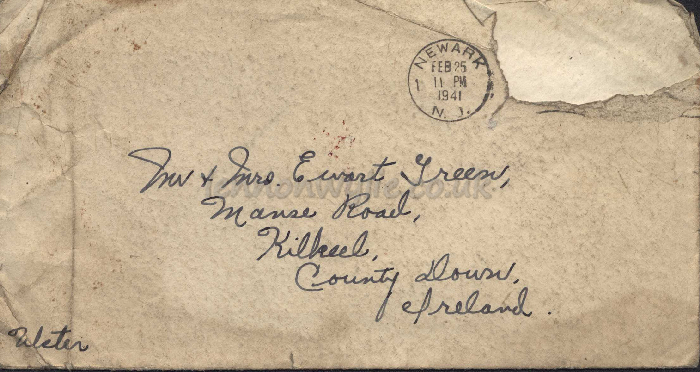 NEWARK
FEB 25
11 PM
1941
N. J.
1
Mr & Mrs. Ewart Green,
Manse Road,
Kilkeel,
County Down,
Ireland.
Ulster